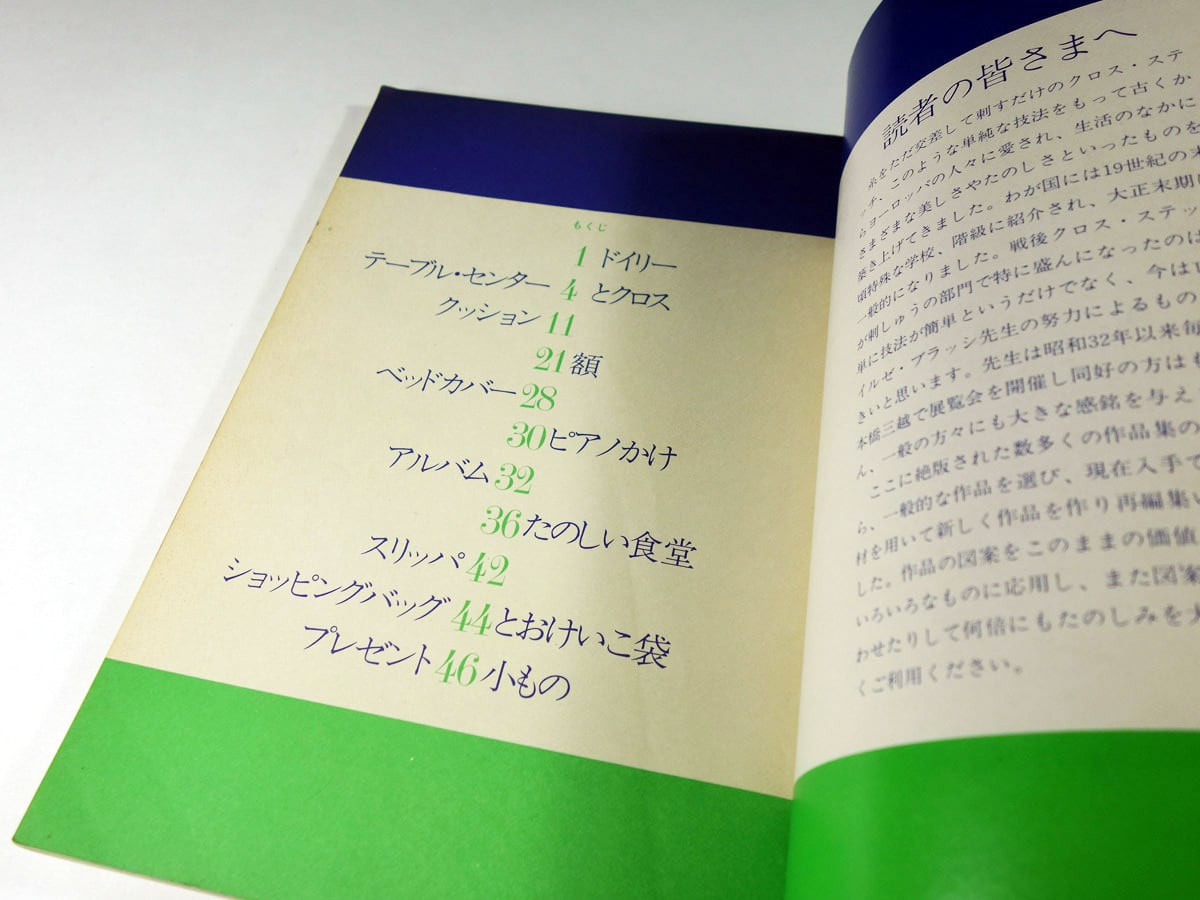 もくじ
1 ドイリー
テーブル・センター 4 とクロス
クッション 11
21 額
ベッドカバー 28
30 ピアノかけ
アルバム 32
36 たのしい食堂
スリッパ 42
ショッピングバッグ 44 とおけいこ袋
プレゼント 46 小もの
読者の皆さまへ
糸をただ交差して刺すだけのクロス・ステ
ッチ、このような単純な技法をもって古くか
らヨーロッパの人々に愛され、生活のなかに
さまざまな美しさやたのしさといったものを
築き上げてきました。わが国には19世紀の末
頃特殊な学校、階級に紹介され、大正末期に
一般的になりました。戦後クロス・ステッ
が刺しゅうの部門で特に盛んになったのは
単に技法が簡単というだけでなく、今は
イルゼ・ブラッシ先生の努力によるもの
きいと思います。先生は昭和32年以来毎
本橋三越で展覧会を開催し同好の方はも
ん、一般の方々にも大きな感銘を与え
ここに絶版された数多くの作品集の
ら、一般的な作品を選び、現在入手で
材を用いて新しく作品を作り再編集い
した。作品の図案をこのままの価値
いろいろなものに応用し、また図案
わせたりして何倍にもたのしみを大
くご利用ください。